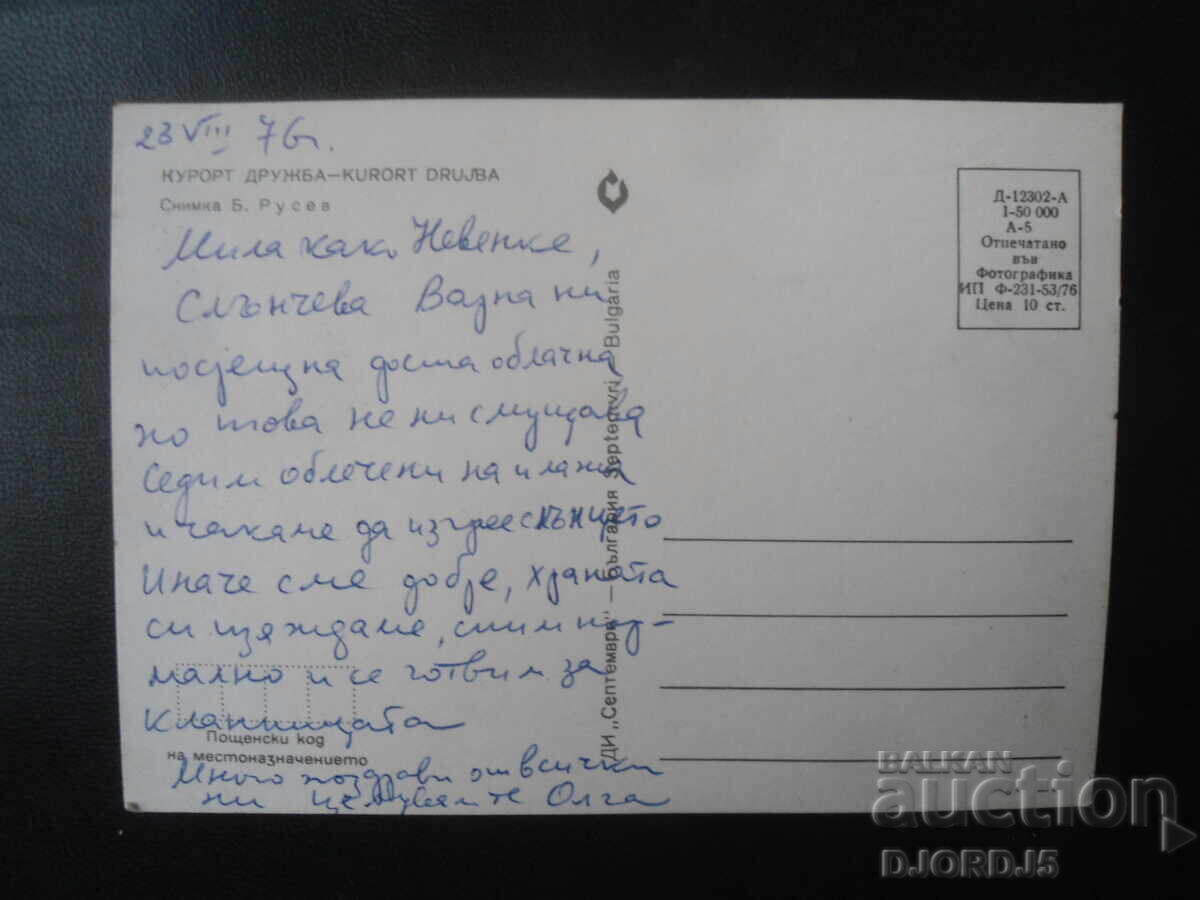 23 VIII 76г.
КУРОРТ ДРУЖБА—KURORT DRUJBA
Снимка Б. Русев
Мила како Невенке,
Слънчева Варна ни
посрещна доста облачна,
но това не ни смущава
Седим облечени на плажа
и чакаме да изгрее слънцето
Иначе сме добре, храната
си изяждаме, спим нор-
мално и се готвим за
кланицата
Пощенски код
на местоназначението
Много поздрави от всички
ни целувам те Олга
ДИ „Септември" — България Septemvri Bulgaria
Д-12302-А
I-50 000
А-5
Отпечатано
във
Фотографика
ИП Ф-231-53/76
Цена 10 ст.
BALKAN
auction
DJORDJ5